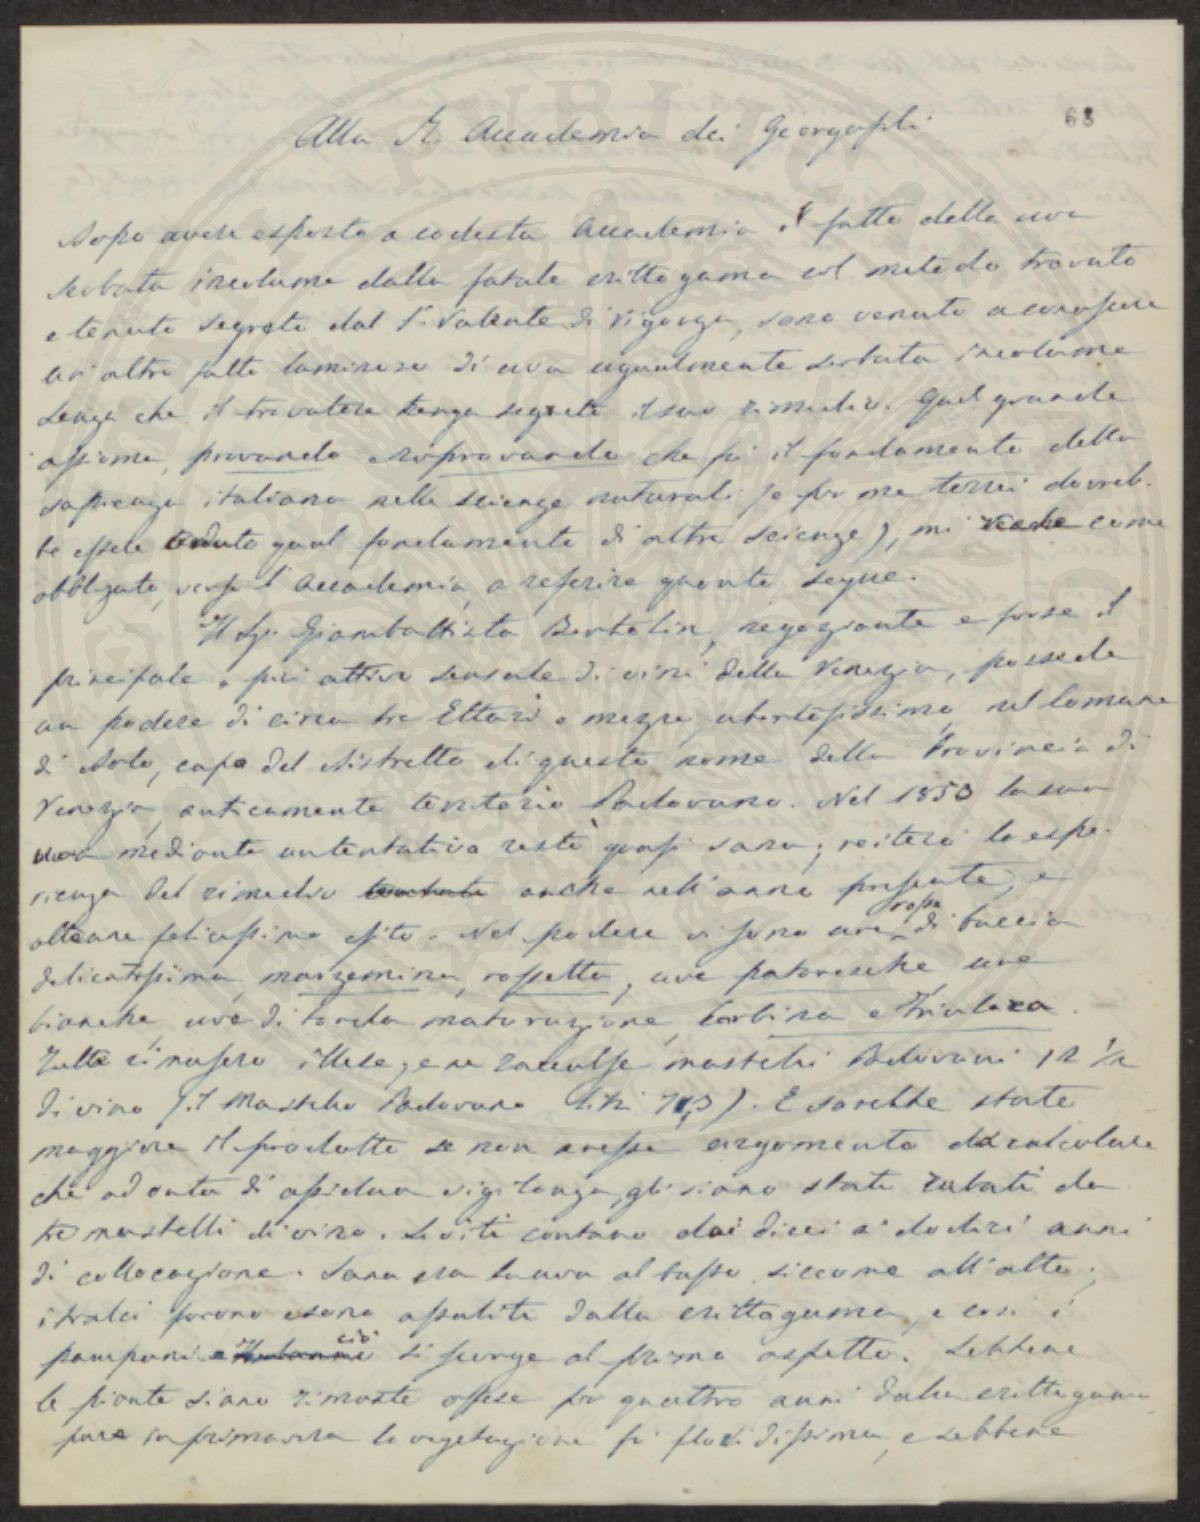 63
Alla R. Accademia dei Georgofili
Dopo avere esposto a codesta Accademia il fatto della uva
serbata incolume dalla fatale crittogama col metodo trovato
e tenuto segreto dal Sr. Valente di Vigonza, sono venuto a conoscere
un altro fatto luminoso di uva egualmente serbata incolume
senza che il trovatore tenga segreto il suo rimedio. Quel grande
assioma, provando e riprovando che fu il fondamento della
sapienza italiana nelle scienze naturali (e per me terrei dovreb-
be essere tenuto qual fondamento di altre scienze), mi come
obbligato, verso l'Accademia, a referire quanto segue.
Il Sigr. Giambattista Bertolin, negoziante e forse il
principale e più attivo sensale di vini della Venezia, possede
un podere di circa tre Ettari e mezzo, ubertosissimo, nel Comune
di Dolo, capo del Distretto di questo nome della Provincia di
Venezia, anticamente territorio Padovano. Nel 1853 la sua
uva mediante un tentativo restò quasi sana; reiterò la espe-
rienza del rimedio anche nell'anno presente, e
ottenne felicissimo esito. Nel podere vi sono uve rosse di buccia
delicatissima, marzemina, rossetta, uve pataresche, uve
bianche, uve di tarda maturazione, corbina e friulara.
Tutte rimasero illese, e ne raccolse mastelli Padovani 12 1/2
di vino (il Mastello Padovano litri 71,3). E sarebbe stato
maggiore il prodotto se non avesse argomento di calcolare
che ad onta di assidua vigilanza, gli siano stati rubati da
tre mastelli di vino. Le viti contano dai dieci ai dodici anni
di collocazione. Sana era la uva al basso siccome all'alto;
i tralci furono e sono assaliti dalla crittogama, e così i
pampani e ciò si scorge al primo aspetto. Sebbene
le piante siano rimaste offese per quattro anni dalla crittogama
pure in primavera la vegetazione fu floridissima, e sebbene